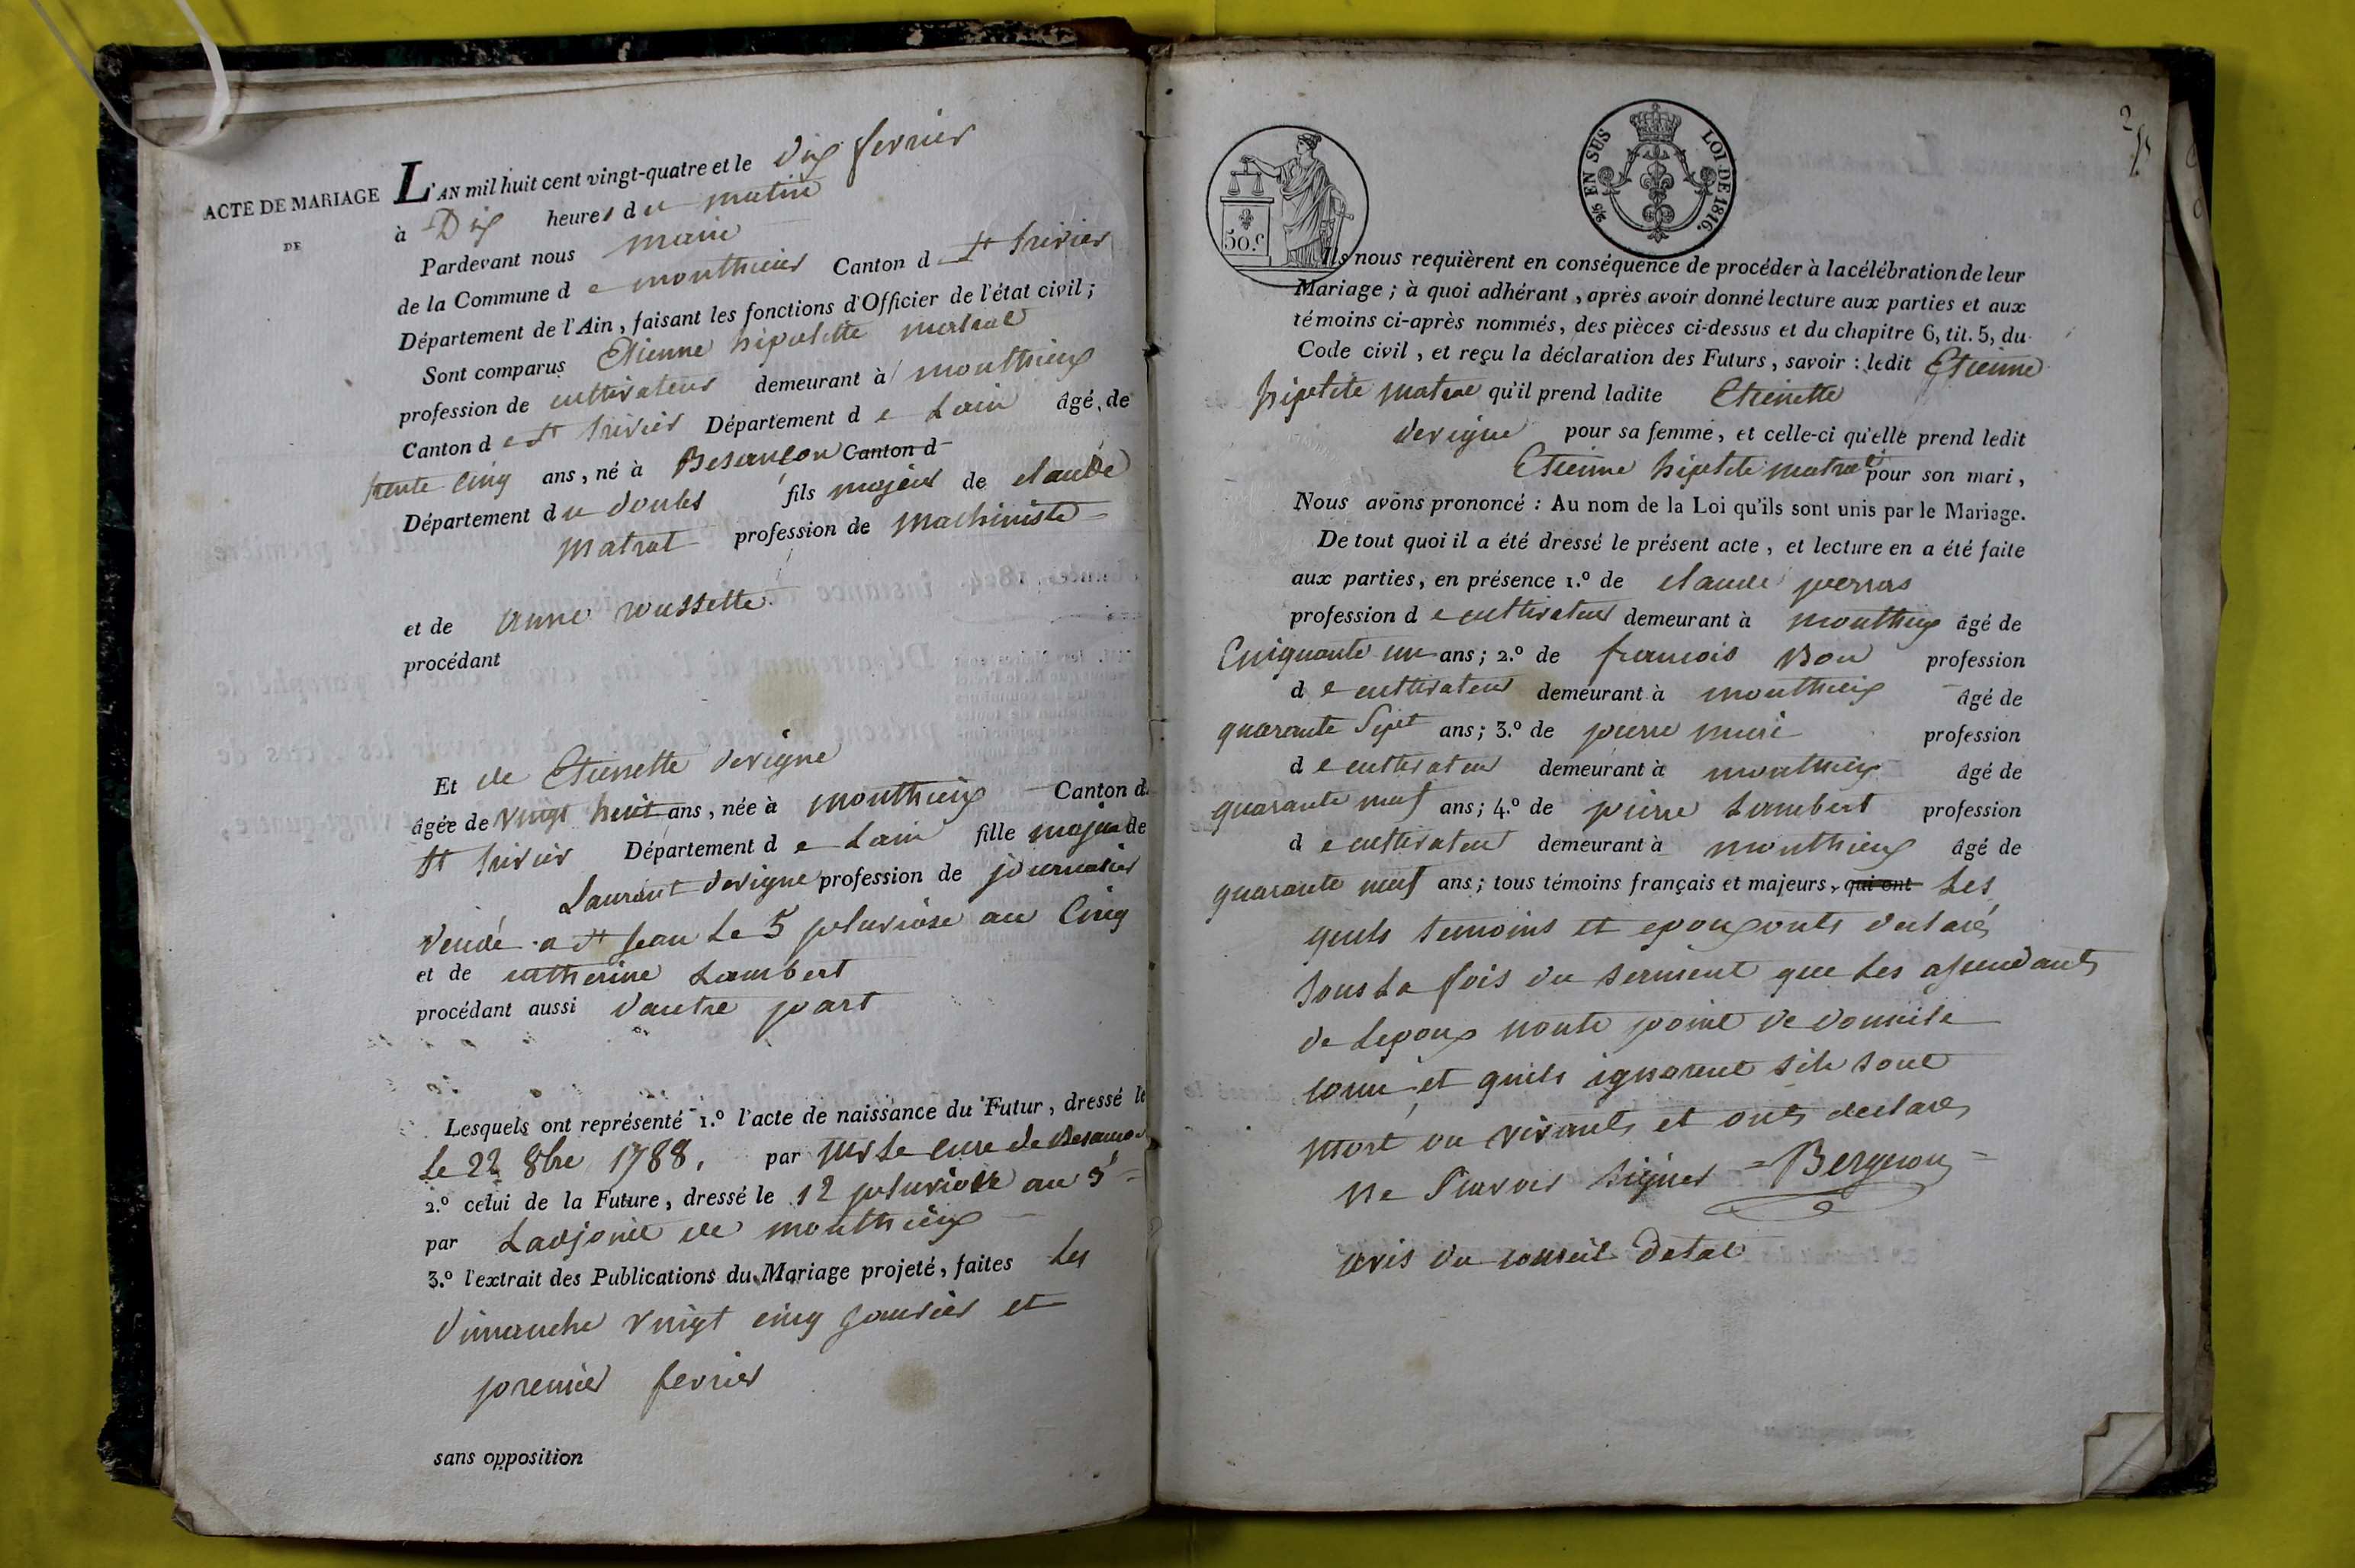 ACTE DE MARIAGE
DE
L'AN mil huit cent vingt-quatre et le dix fevrier
à Dix heures du matin
Pardevant nous maire
de la Commune de monthieux Canton d St trivier
Département de l'Ain, faisant les fonctions d'Officier de l'état civil;
Sont comparus Etienne hipolitte matrat
profession de cultivateur demeurant à monthieux
Canton de St trivier Département de Lain âgé de
trente cinq ans, né à Besançon Canton d
Département du doubs fils majeur de claude
matrat profession de machiniste
et de anne roussette
procédant
Et de Etienette devigne
âgée de vingt huit ans, née à monthieux Canton d
St trivier Département de Lain fille majeur de
Laurant devigne profession de journalier
deudé a St jean Le 5 pluviose au Cinq
et de catherine Lambert
procédant aussi dautre part
Lesquels ont représenté 1.º l'acte de naissance du Futur, dressé le
Le 22 8bre 1788, par Mr Le cure de Besancon
2.º celui de la Future, dressé le 12 pluviose an 3
par Ladjoint de monthieux
3.º l'extrait des Publications du Mariage projeté, faites Les
dimanche vingt cinq janvier et
premier fevrier
sans opposition
2
50.c
2/5 EN SUS LOI DE 1816.
Ils nous requièrent en conséquence de procéder à la célébration de leur
Mariage; à quoi adhérant, après avoir donné lecture aux parties et aux
témoins ci-après nommés, des pièces ci-dessus et du chapitre 6, tit. 5, du
Code civil, et reçu la déclaration des Futurs, savoir: ledit Etienne
hipolite matrat qu'il prend ladite Etienette
devigne pour sa femme, et celle-ci qu'elle prend ledit
Etienne hipolite matrat pour son mari,
Nous avons prononcé: Au nom de la Loi qu'ils sont unis par le Mariage.
De tout quoi il a été dressé le présent acte, et lecture en a été faite
aux parties, en présence 1.º de claude perras
profession de cultivateur demeurant à monthieux âgé de
Cinquante un ans; 2.º de francois Bon profession
de cultivateur demeurant à monthieux âgé de
quarante Sept ans; 3.º de pierre profession
de cultivateur demeurant à monthieux âgé de
quarante neuf ans; 4.º de pierre Lambert profession
de cultivateur demeurant à monthieux âgé de
quarante neuf ans; tous témoins français et majeurs, qui ont Les
quels temoins et epoux onts declarés
Sous La fois du serment que Les assendants
de Lepoux nonts point de domicile
connu et quils ignorent sils sont
mort ou vivants et onts declarés
ne Scavoir signer = Bergeron =
avis du conseil detat